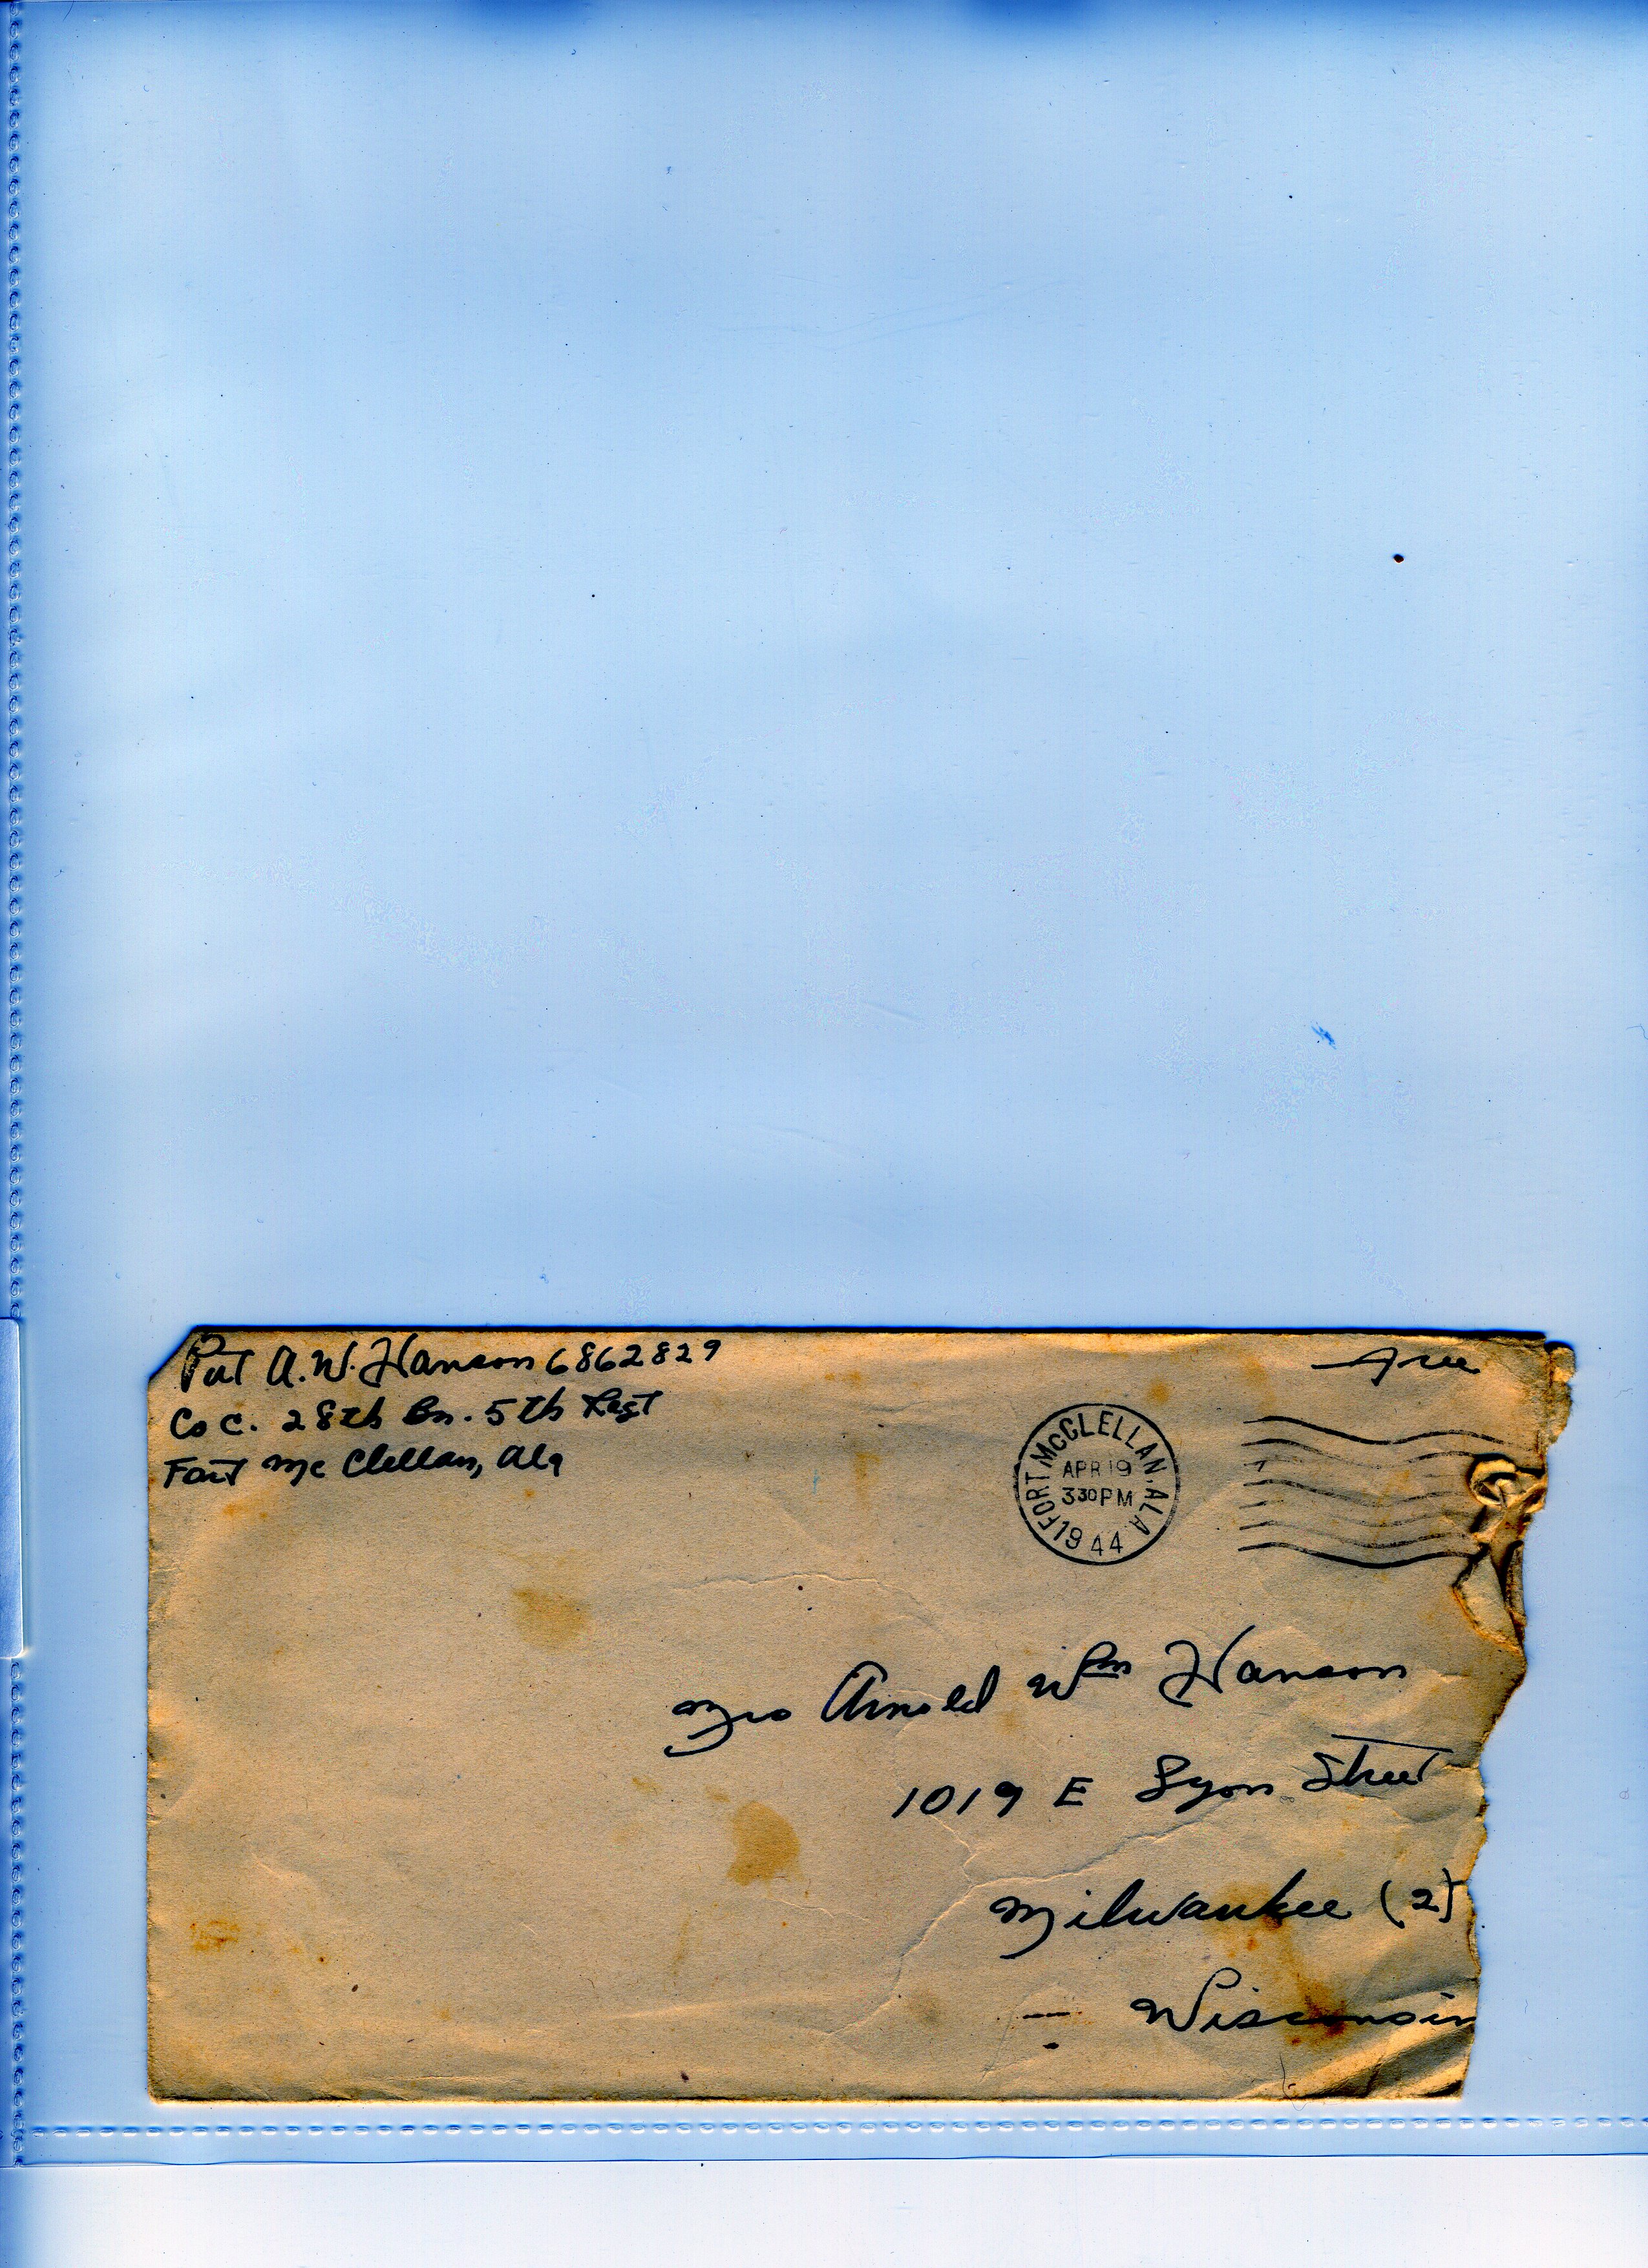 Pvt A.W. Hanson 6862829
Co C. 28th Bn. 5th Regt
Fort Mc Clellan, Ala
Free
FORT McCLELLAN, ALA.
APR 19
330 PM
1944
Mrs Arnold Wm Hanson
1019 E Lyon Street
Milwaukee (2)
Wisconsin